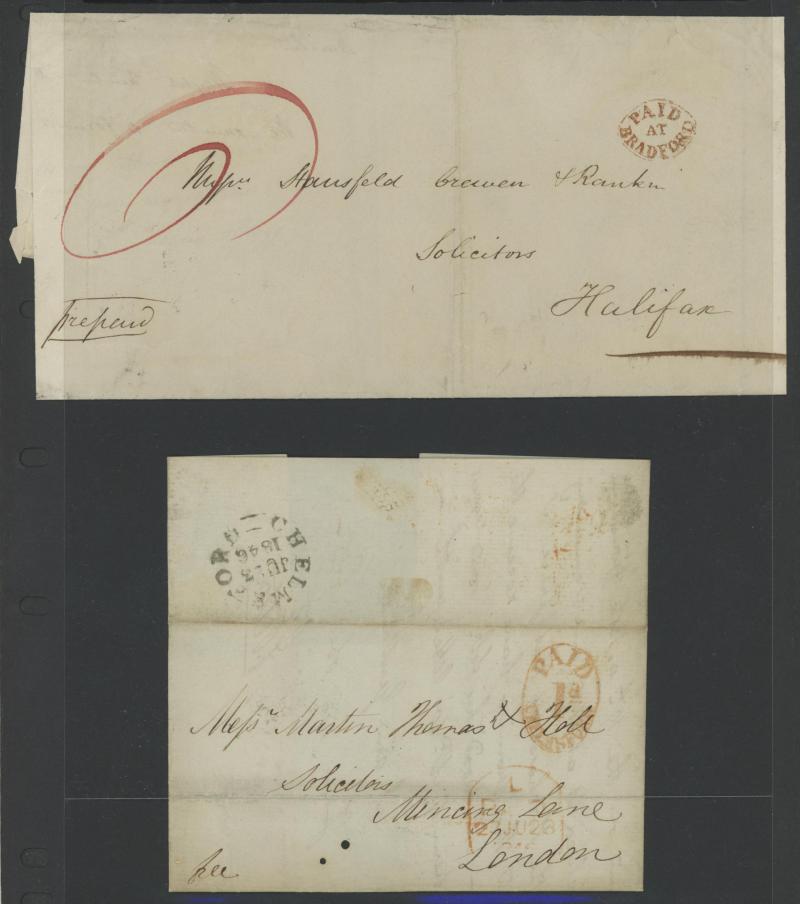 PAID
AT
BRADFORD
Messrs Stansfeld Craven & Rankin
Solicitors
Halifax
prepaid
CHELMSFORD
JU 23
1846
PAID
1d
CHELMSFORD
Messrs Martin Thomas & Holl
Solicitors
Mincing Lane
London
L
JU23